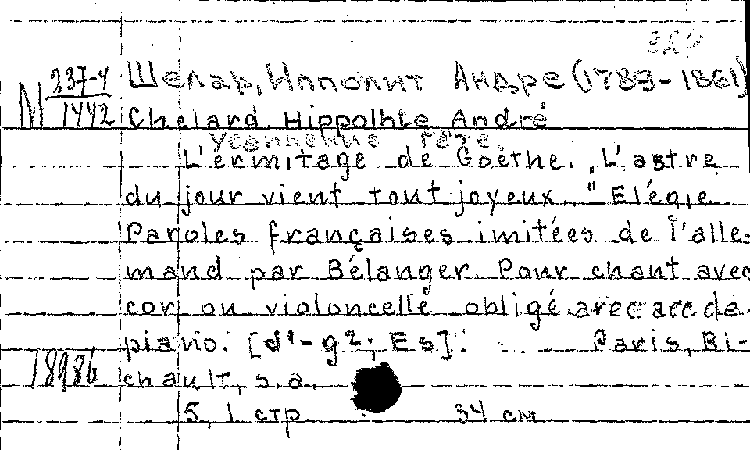 329
М 237-4
1442
Шелар, Ипполит Андре (1789-1861)
Chelard Hippolhte André
Уединение Гёте.
L'ermitage de Goethe. „L'astre
du jour vient tout joyeux." Elégie
Paroles françaises imitées de l'alle-
mand par Bélanger Pour chant avec
cor ou violoncelle obligé avec acc de
piano. [d¹-g²; Es]. Paris, Ri-
chault, s.a.
18986
5, 1 стр 34 см